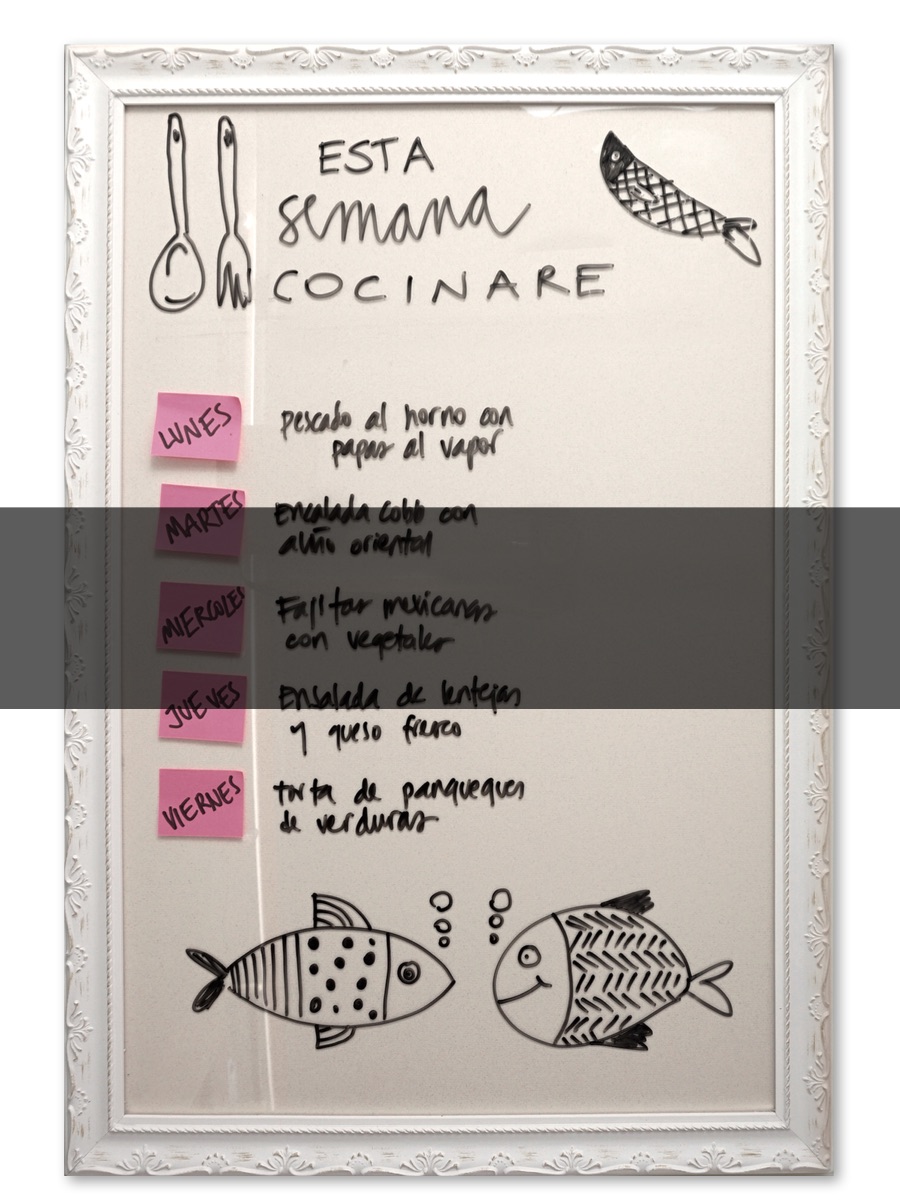 ESTA
semana
COCINARE
LUNES
pescado al horno con
papas al vapor
MARTES
Ensalada cobb con
aliño oriental
MIERCOLES
Fajitas mexicanas
con vegetales
JUEVES
Ensalada de lentejas
y queso fresco
VIERNES
torta de panqueques
de verduras